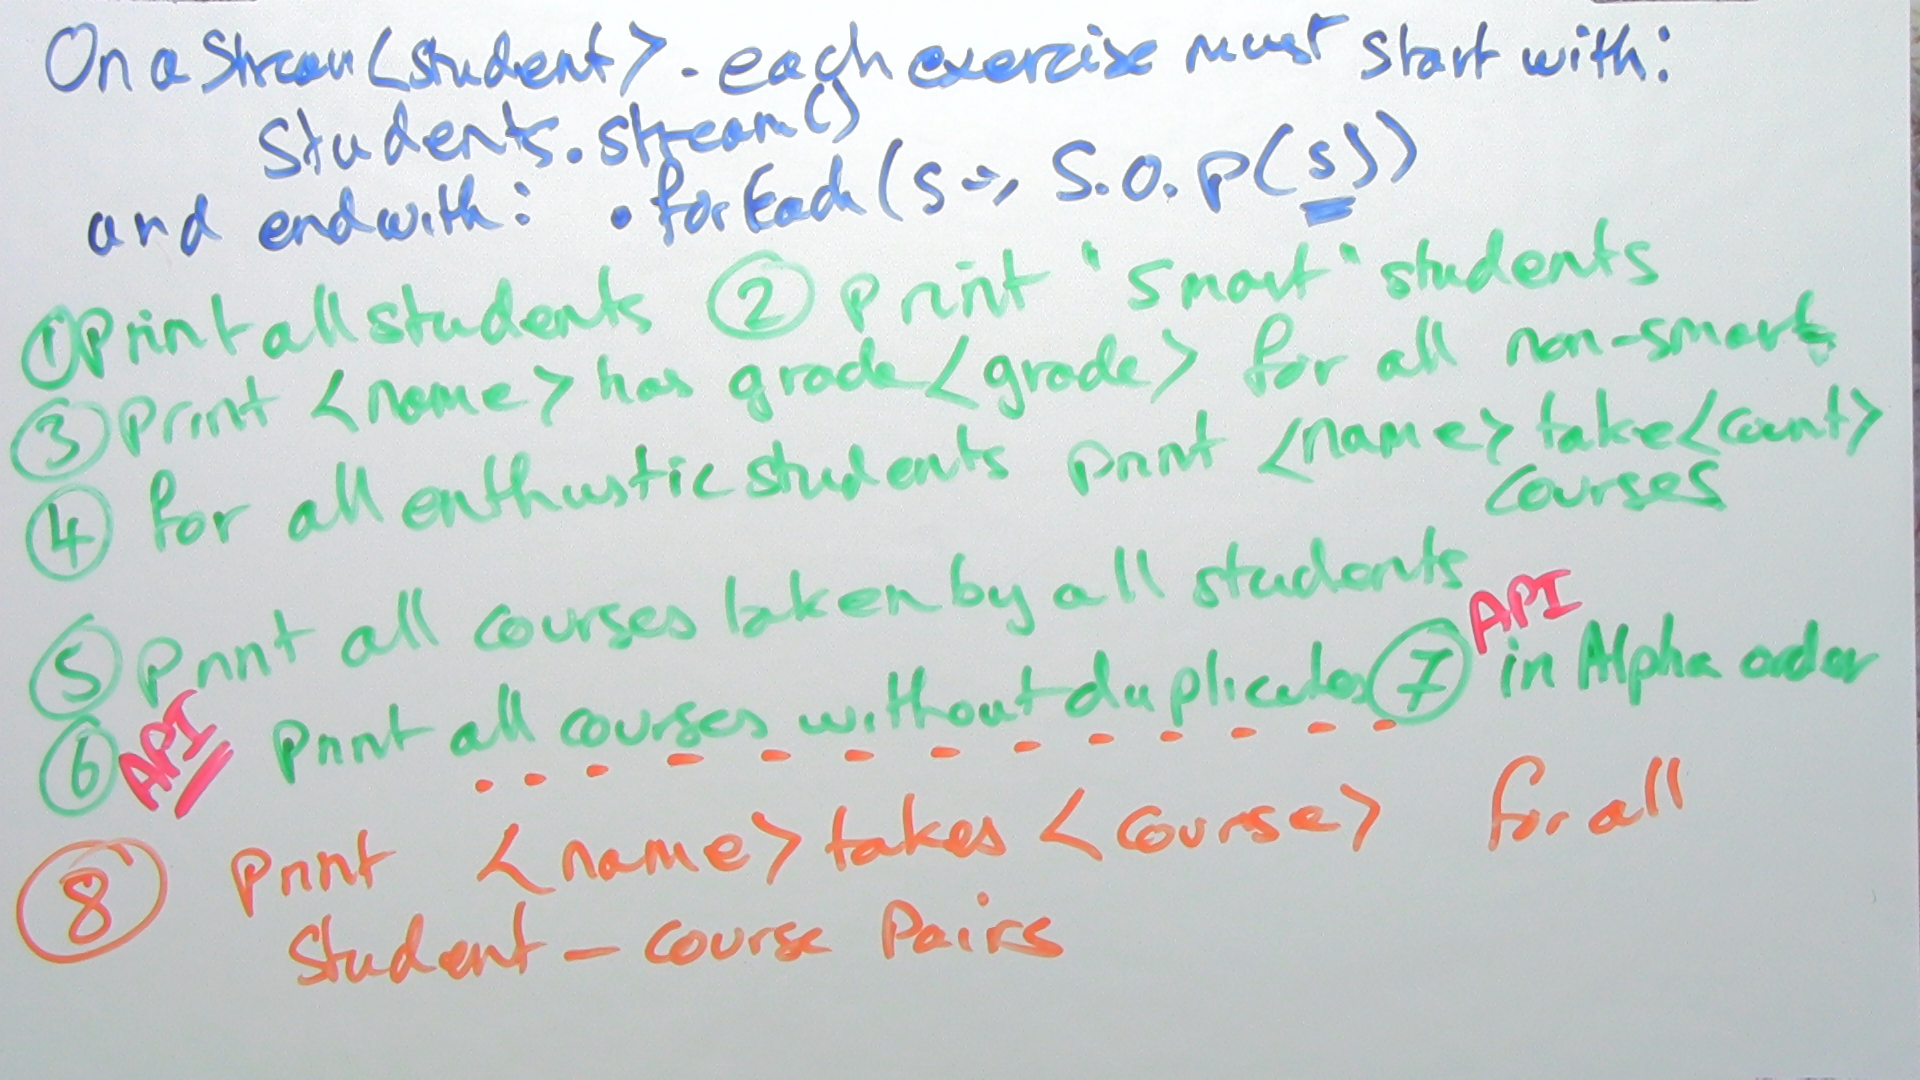 On a Stream<student> - each exercise must start with:
Students.stream()
and end with: .forEach(s -> S.O.P(s))
① Print all students ② print "smart" students
③ print <name> has grade <grade> for all non-smart
④ for all enthustic students print <name> take <count>
courses
⑤ print all courses taken by all students
⑥ API print all courses without duplicates ⑦ API in Alpha order
⑧ print <name> takes <course> for all
Student - course Pairs